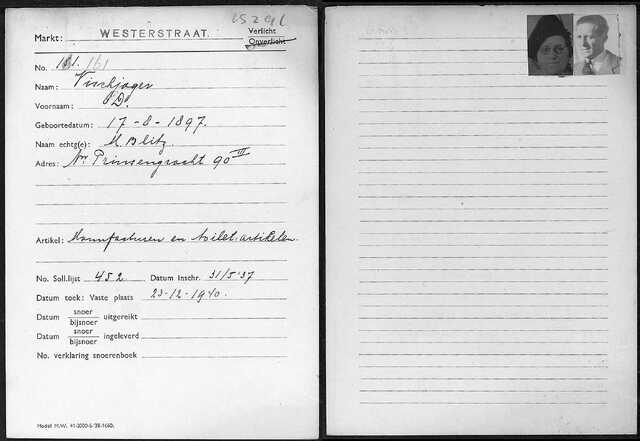 Markt: WESTERSTRAAT.
Verlicht
Onverlicht
No. 161. 161
Naam: Vischjager
Voornaam: D.
Geboortedatum: 17-8-1897.
Naam echtg(e): M. Blitz.
Adres: Nw Prinsengracht 90 III
Artikel: Manufacturen en toilet. artikelen.
No. Soll.lijst 452 Datum Inschr. 31/5 '37
Datum toek: Vaste plaats 23-12-1940.
Datum snoer
bijsnoer uitgereikt
Datum snoer
bijsnoer ingeleverd
No. verklaring snoerenboek